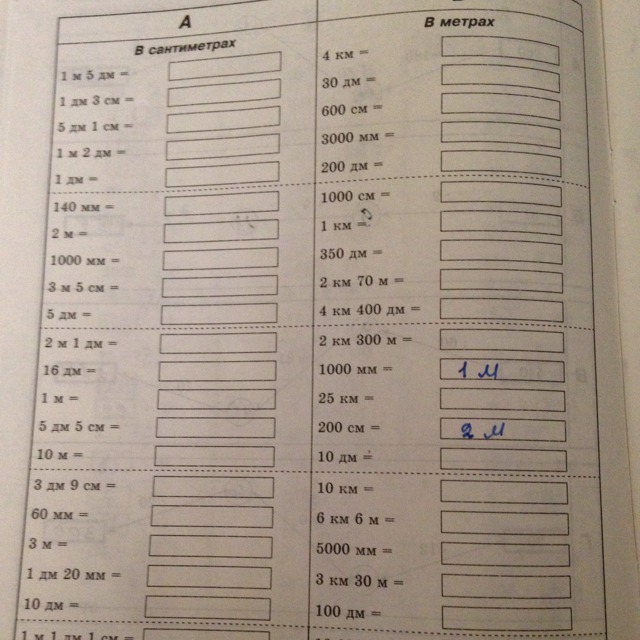 А
В сантиметрах
1 м 5 дм =
1 дм 3 см =
5 дм 1 см =
1 м 2 дм =
1 дм =
140 мм =
2 м =
1000 мм =
3 м 5 см =
5 дм =
2 м 1 дм =
16 дм =
1 м =
5 дм 5 см =
10 м =
3 дм 9 см =
60 мм =
3 м =
1 дм 20 мм =
10 дм =
1 м 1 дм 1 см =
В метрах
4 км =
30 дм =
600 см =
3000 мм =
200 дм =
1000 см =
1 км =
350 дм =
2 км 70 м =
4 км 400 дм =
2 км 300 м =
1000 мм = 1 м
25 км =
200 см = 2 м
10 дм =
10 км =
6 км 6 м =
5000 мм =
3 км 30 м =
100 дм =